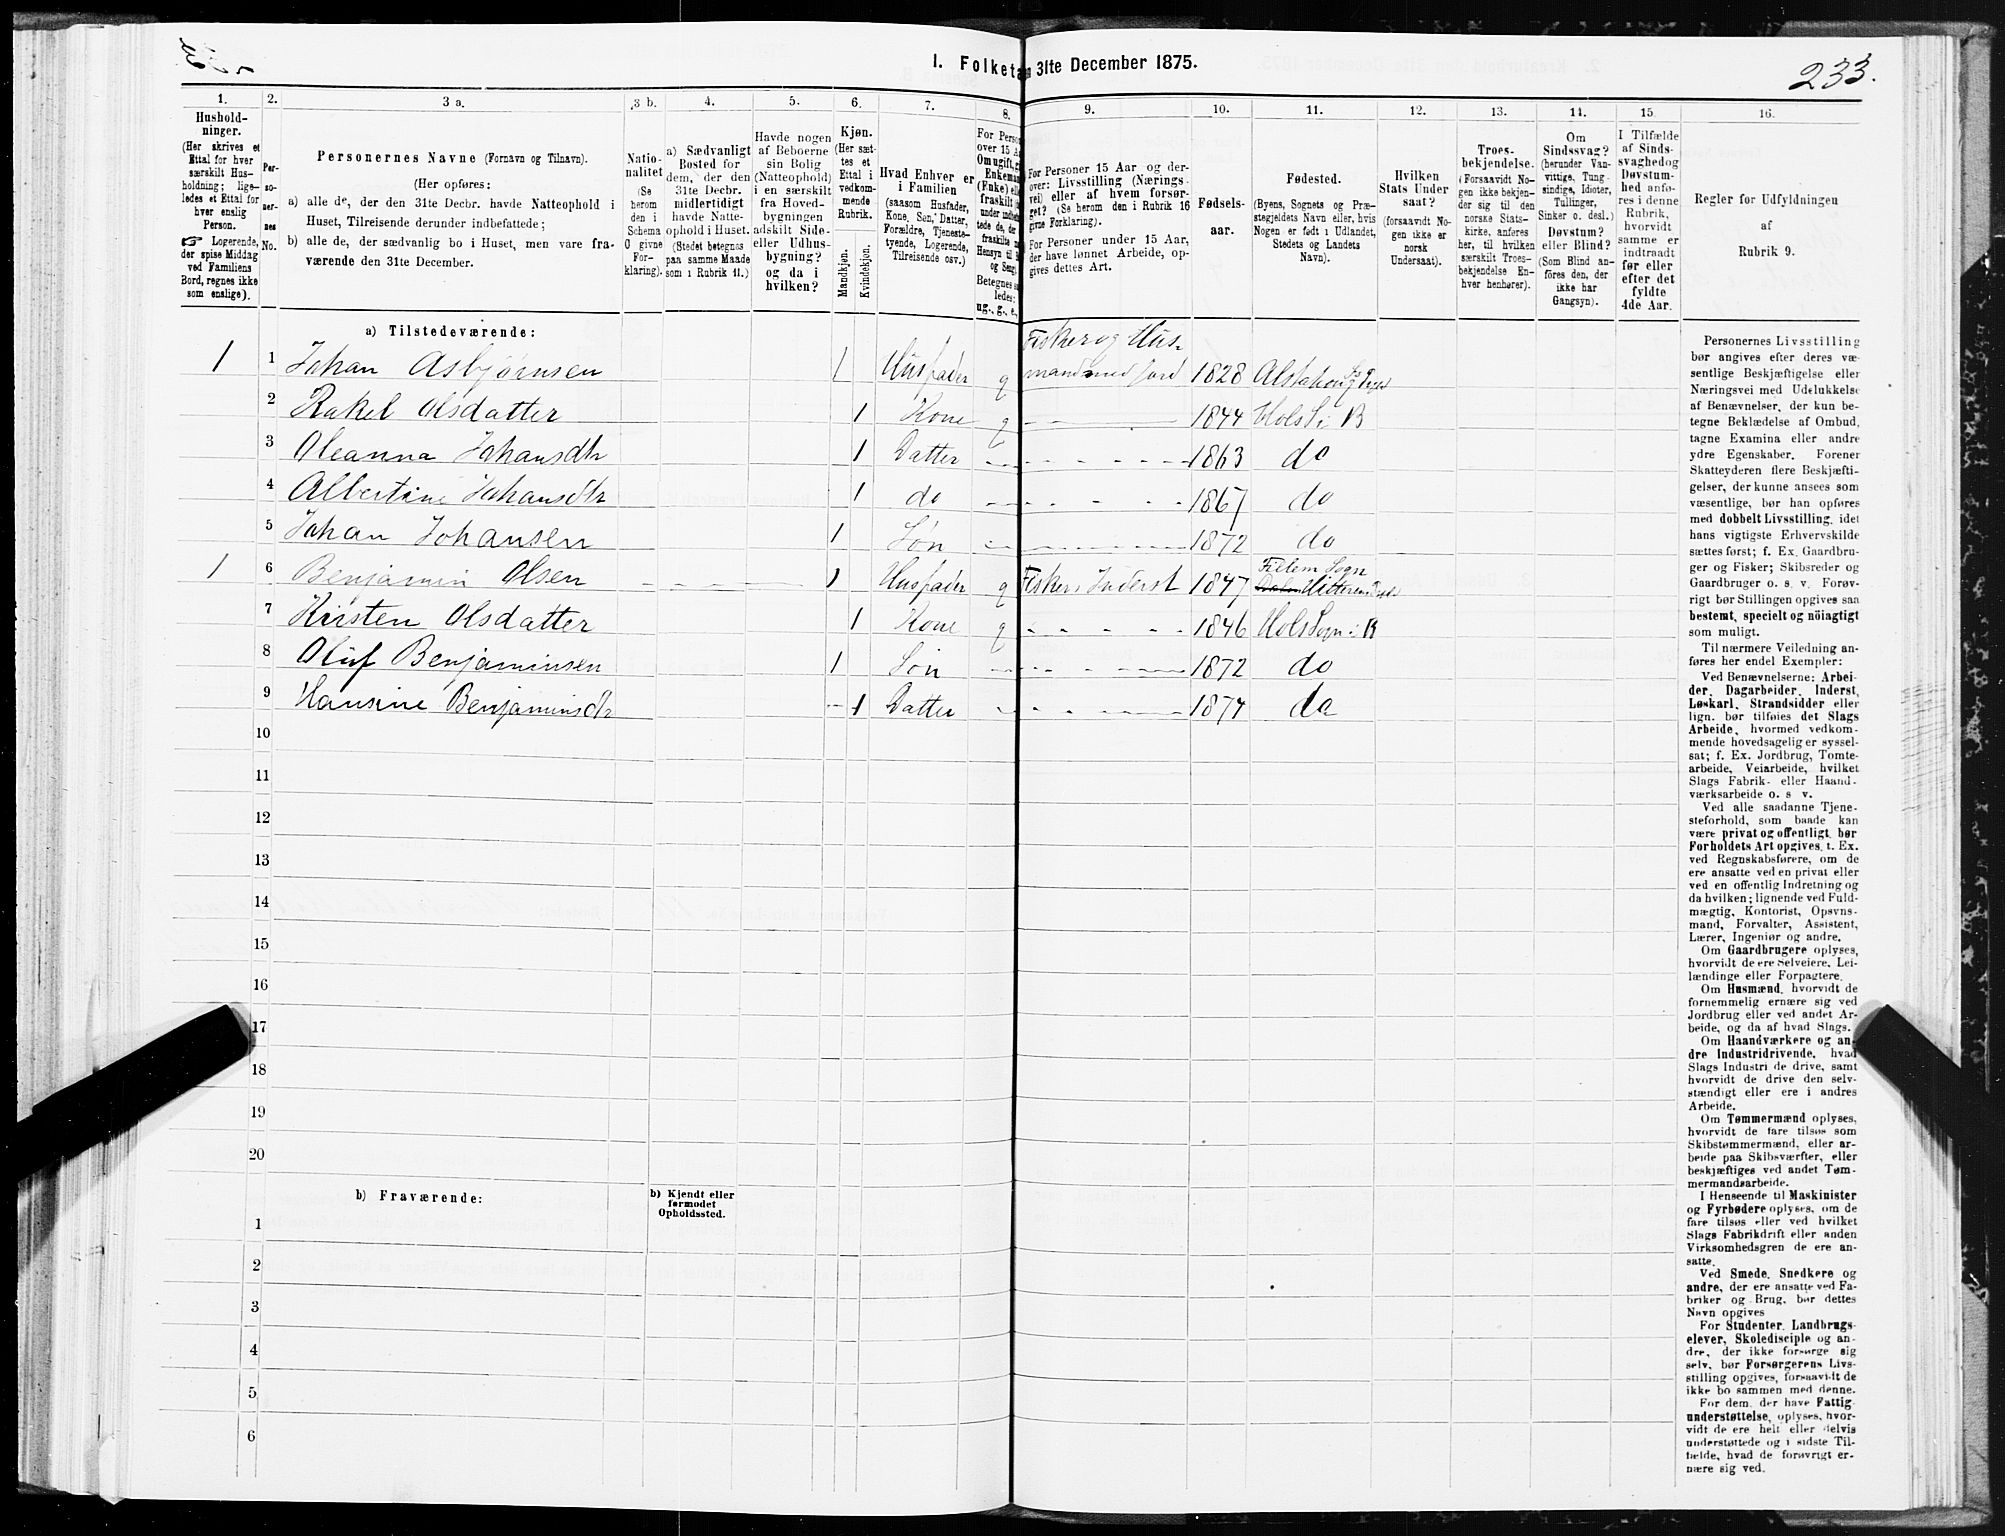 I. Folketæ 31te December 1875.
233.
1.
Hushold-
ninger.
(Her skrives et
Ettal for hver
særskilt Hus-
holdning; lige-
ledes et Ettal for
hver enslig
Person.
☞ Logerende,
der spise Middag
ved Familiens
Bord, regnes ikke
som enslige).
2.
Per-
so-
ner-
nes
No.
3 a.
Personernes Navne (Fornavn og Tilnavn).
(Her opføres:
a) alle de, der den 31te Decbr. havde Natteophold i
Huset, Tilreisende derunder indbefattede;
b) alle de, der sædvanlig bo i Huset, men vare fra-
værende den 31te December.
3 b.
Natio-
nalitet
(Se
herom
den i
Schema
O givne
For-
klaring).
4.
a) Sædvanligt
Bosted for
dem, der den
31te Decbr.
midlertidigt
havde Natte-
ophold i Huset.
(Stedet betegnes
paa samme Maade
som i Rubrik 11.)
5.
Havde nogen
af Beboerne
sin Bolig
(Natteophold)
i en særskilt
fra Hoved-
bygningen
adskilt Side-
eller Udhus-
bygning?
og da i
hvilken?
6.
Kjøn.
(Her sæt-
tes et
Ettal i
vedkom-
mende
Rubrik.
Mandkjøn.
Kvindekjøn.
7.
Hvad Enhver er
i Familien
(saasom Husfader,
Kone, Søn, Datter,
Forældre, Tjeneste-
tyende, Logerende,
Tilreisende osv.)
8.
For Person
over 15 Aa
Om ugift, gi
Enkeman
(Enke) ell
fraskilt
Betegnes sa
ledes:
ug., g., e.,
9.
For Personer 15 Aar og der-
over: Livsstilling (Nærings-
vei) eller af hvem forsør-
get? (Se herom den i Rubrik 16
givne Forklaring).
For Personer under 15 Aar,
der have lønnet Arbeide, op-
gives dettes Art.
10.
Fødsels-
aar.
11.
Fødested.
(Byens, Sognets og Præ-
stegjeldets Navn eller, hvis
Nogen er født i Udlandet,
Stedets og Landets
Navn).
12.
Hvilken
Stats Under
saat?
(forsaavidt No-
gen ikke er
norsk
Undersaat).
13.
Troes-
bekjendelse.
(Forsaavidt No-
gen ikke bekjen-
der sig til den
norske Stats-
kirke, anføres
her, til hvilken
særskilt Troes-
bekjendelse En-
hver henhører).
14.
Om
Sindssvag?
(herunder Van-
vittige, Tung-
sindige, Idioter,
Tullinger,
Sinker o. desl.)
Døvstum?
eller Blind?
(Som Blind an-
føres den, der
ikke har
Gangsyn).
15.
I Tilfælde
af Sinds-
svaghed og
Døvstum-
hed anfø-
res i denne
Rubrik,
hvorvidt
samme er
indtraadt
før eller
efter det
fyldte
4de Aar.
16.
Regler for Udfyldningen
af
Rubrik 9.
a) Tilstedeværende:
1 1 Johan Asbjørnsen 1 Husfader g Fisker og Hus-
mand med Jord 1828 Alstahoug
2 Rakel Olsdatter 1 Kone g 1844 Hols S i B
3 Oleanna Johansdtr 1 Datter 1863 do
4 Albertine Johansdtr 1 do 1867 do
5 Johan Johansen 1 Søn 1872 do
1 6 Benjamin Olsen 1 Husfader g Fisker Inderst 1847 Fillem Sogn Hitteren
7 Kirsten Olsdatter 1 Kone g 1846 Hols Sogn i B
8 Oluf Benjaminsen 1 Søn 1872 do
9 Hansine Benjaminsdtr 1 Datter 1874 do
10
11
12
13
14
15
16
17
18
19
20
b) Fraværende:
b) Kjendt eller
formodet
Opholdssted.
1
2
3
4
5
6
Personernes Livsstilling
bør angives efter deres væ-
sentlige Beskjæftigelse eller
Næringsvei med Udelukkelse
af Benævnelser, der kun be-
tegne Beklædelse af Ombud,
tagne Examina eller andre
ydre Egenskaber. Forener
Skatteyderen flere Beskjæfti-
gelser, der kunne ansees som
væsentlige, bør han opføres
med dobbelt Livsstilling, idet
hans vigtigste Erhvervskilde
sættes først; f. Ex. Gaardbru-
ger og Fisker; Skibsreder og
Gaardbruger o. s. v. Forøv-
rigt bør Stillingen opgives saa
bestemt, specielt og nöiagtigt
som muligt.
Til nærmere Veiledning an-
føres her endel Exempler:
Ved Benævnelserne: Arbei-
der, Dagarbeider, Inderst,
Løskarl, Strandsidder eller
lign. bør tilføies det Slags
Arbeide, hvormed vedkom-
mende hovedsagelig er syssel-
sat; f. Ex. Jordbrug, Tomte-
arbeide, Veiarbeide, hvilket
Slags Fabrik- eller Haand-
værksarbeide o. s v.
Ved alle saadanne Tjene-
steforhold, som baade kan
være privat og offentligt, bør
Forholdets Art opgives, t. Ex.
ved Regnskabsførere, om de
ere ansatte ved en privat eller
ved en offentlig Indretning og
da hvilken; lignende ved Fuld-
mægtig, Kontorist, Opsyns-
mand, Forvalter, Assistent,
Lærer, Ingeniør og andre.
Om Gaardbrugere oplyses,
hvorvidt de ere Selveiere, Lei-
lændinge eller Forpagtere.
Om Husmænd, hvorvidt de
fornemmelig ernære sig ved
Jordbrug eller ved andet Ar-
beide, og da af hvad Slags.
Om Haandværkere og an-
dre Industridrivende, hvad
Slags Industri de drive, samt
hvorvidt de drive den selv-
stændigt eller ere i andres
Arbeide.
Om Tømmermænd oplyses,
hvorvidt de fare tilsøs som
Skibstømmermænd, eller ar-
beide paa Skibsværfter, eller
beskjæftiges ved andet Tøm-
mermandsarbeide.
I Henseende til Maskinister
og Fyrbødere oplyses, om de
fare tilsøs eller ved hvilket
Slags Fabrikdrift eller anden
Virksomhedsgren de ere an-
satte.
Ved Smede, Snedkere og
andre, der ere ansatte ved Fa-
briker og Brug, bør dettes
Navn opgives
For Studenter, Landbrugs-
elever, Skoledisciple og an-
dre, der ikke forsørge sig
selv, bør Forsørgerens Livs-
stilling opgives, forsaavidt de
ikke bo sammen med denne.
For dem, der have Fattig-
understøttelse, oplyses, hvor-
vidt de ere helt eller delvis
understøttede og i sidste Til-
fælde, hvad de forøvrigt er-
nære sig ved.